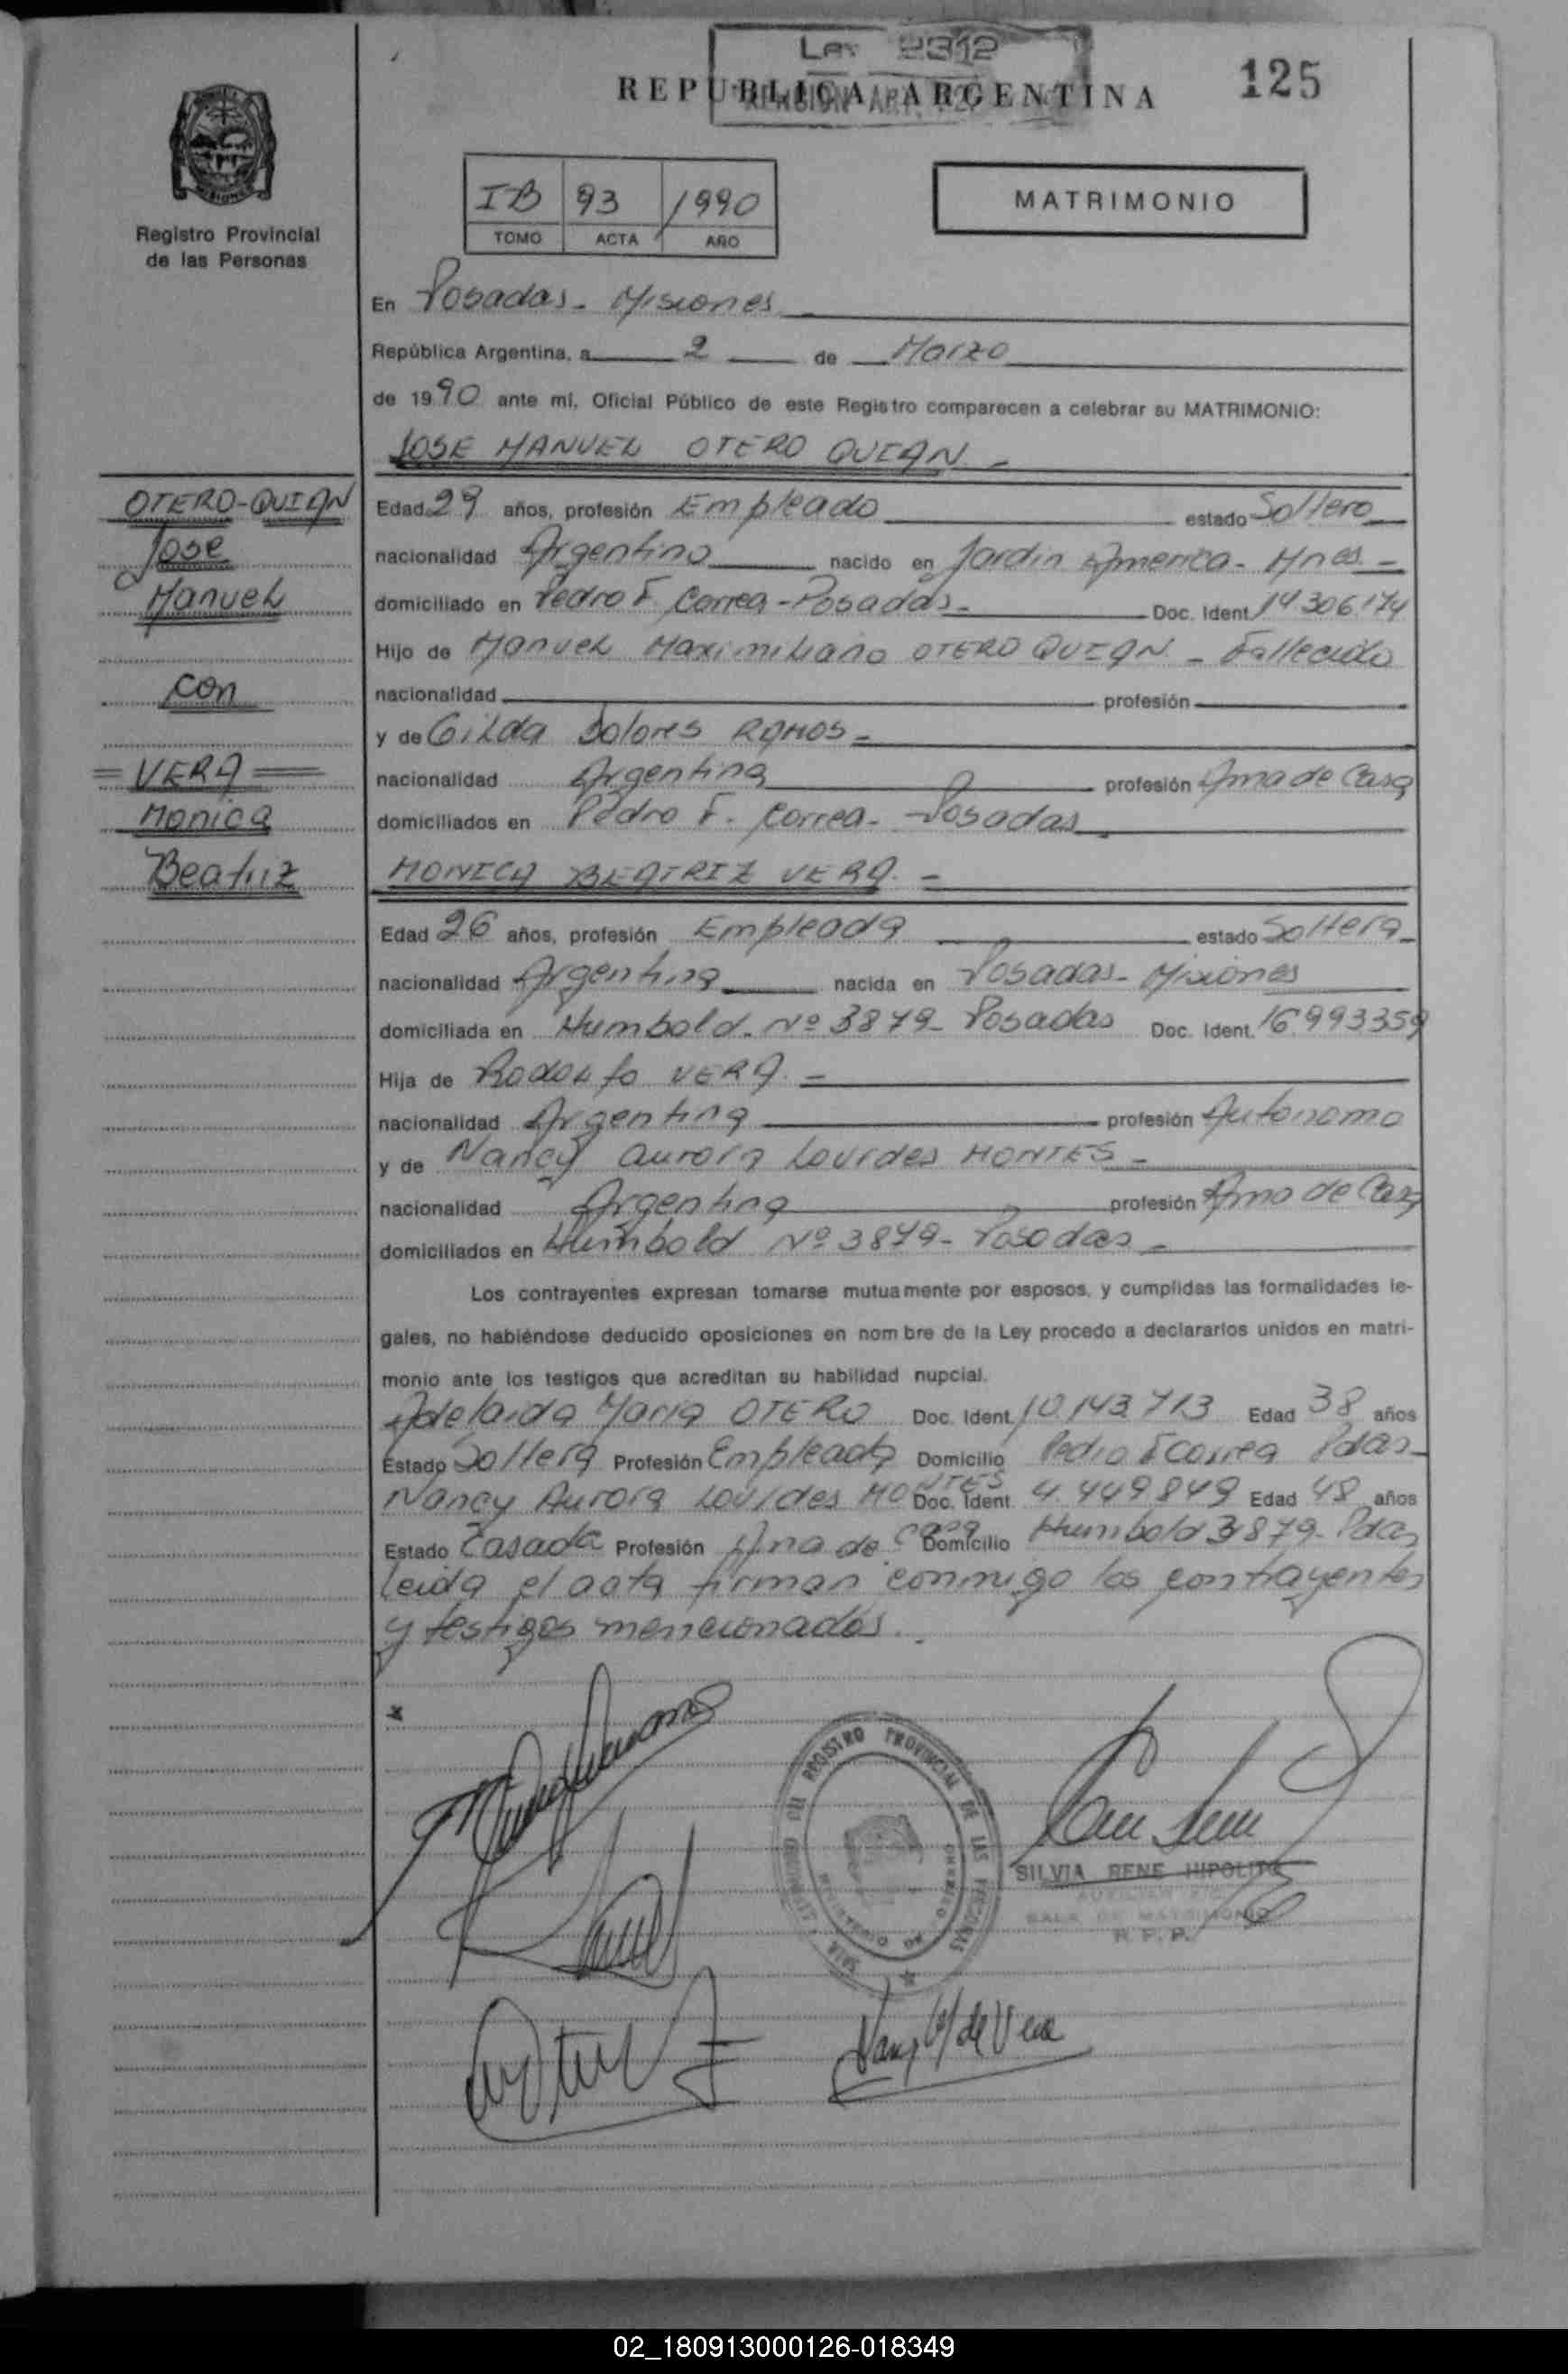 Ley 2312
REPUBLICA ARGENTINA
125
Registro Provincial
de las Personas
IB 93 1990
TOMO ACTA AÑO
MATRIMONIO
En Posadas - Misiones
República Argentina, a 2 de Marzo
de 1990 ante mí, Oficial Público de este Registro comparecen a celebrar su MATRIMONIO:
JOSE MANUEL OTERO QUIAN -
OTERO-QUIAN
Jose
Manuel
con
= VERA =
Monica
Beatriz
Edad 29 años, profesión Empleado estado Soltero
nacionalidad Argentino nacido en Jardin America - Mnes. -
domiciliado en Pedro F. Correa - Posadas - Doc. Ident. 14.306.174
Hijo de Manuel Maximiliano OTERO QUIAN - Fallecido
nacionalidad profesión
y de Gilda Dolores RAMOS -
nacionalidad Argentina profesión Ama de Casa
domiciliados en Pedro F. Correa - Posadas
MONICA BEATRIZ VERA. -
Edad 26 años, profesión Empleada estado Soltera
nacionalidad Argentina nacida en Posadas - Misiones
domiciliada en Humbold. Nº 3879 - Posadas Doc. Ident. 16.993359
Hija de Rodolfo VERA. -
nacionalidad Argentina profesión Autonomo
y de Nancy Aurora Lourdes MONTES -
nacionalidad Argentina profesión Ama de Casa
domiciliados en Humbold Nº 3879 - Posadas -
Los contrayentes expresan tomarse mutuamente por esposos, y cumplidas las formalidades le-
gales, no habiéndose deducido oposiciones en nombre de la Ley procedo a declararlos unidos en matri-
monio ante los testigos que acreditan su habilidad nupcial.
Adelaida Maria OTERO Doc. Ident. 10.143.713 Edad 38 años
Estado Soltera Profesión Empleada Domicilio Pedro F Correa Pdas -
Nancy Aurora Lourdes MONTES Doc. Ident. 4.449.849 Edad 48 años
Estado Casada Profesión Ama de Casa Domicilio Humbold 3879 - Pdas
leida el acta firman conmigo los contrayentes
y testigos mencionados.
x
REGISTRO PROVINCIAL DE LAS PERSONAS
SILVIA RENE HIPOLITO
SALA DE MATRIMONIO
R. P. P.
de Vera
02_180913000126-018349